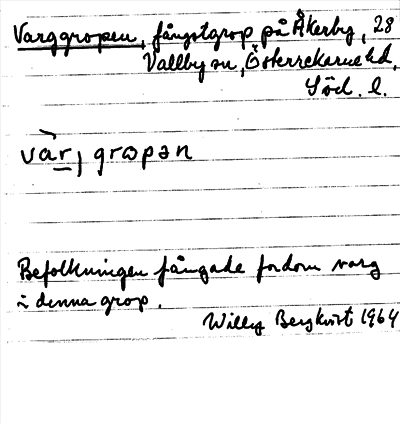 Varggropen, fångstgrop på Åkerby, 28
Vallby sn, Österrekarne hd,
Söd. l.
var, gropən
Befolkningen fångade fordom varg
i denna grop.
Willy Bergkvist 1964